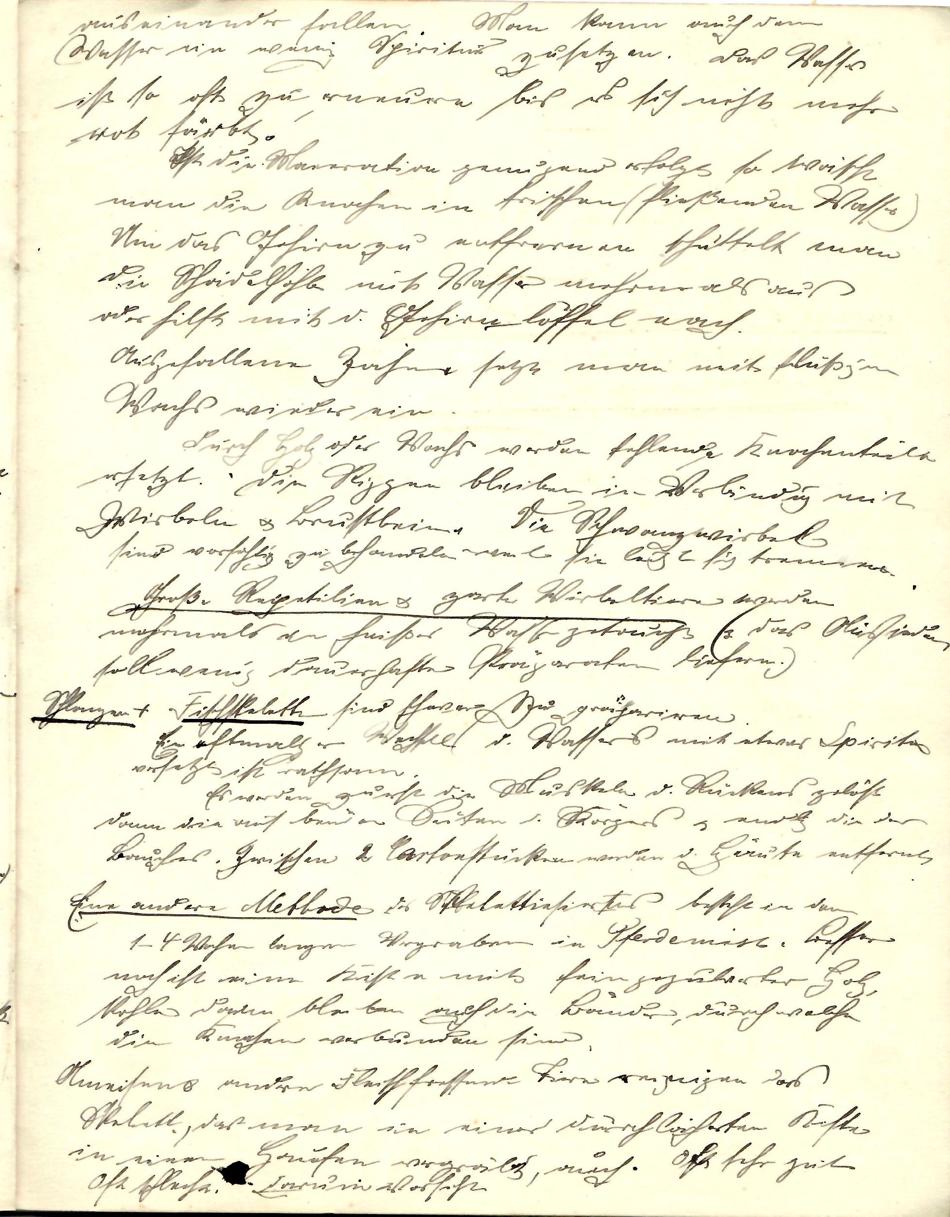 auseinander fallen. Man kann auch dem
Wasser ein wenig Spiritus zusetzen. Das Wasser
ist so oft zu erneuern bis es sich nicht mehr
rot färbt.
Ist die Maceration genügend erfolgt so wäscht
man die Knochen in frischen (fließenden Wasser)
Um das Gehirn zu entfernen schüttelt man
die Schädelhöhle mit Wasser mehrmals aus
oder hilft mit d. Gehirnlöffel nach.
Ausgefallene Zähne setzt man mit flüßigen
Wachs wieder ein.
Durch Holz oder Wachs werden fehlende Knochenteile
ersetzt. Die Rippen bleiben in Verbindung mit
Wirbeln & Brustbein. Die Schwanzwirbel
sind vorsichtig zu behandeln weil sie leicht sich trennen.
Große Reptilien & zarte Wirbeltiere werden
mehrmals in heißes Wasser getaucht (das Aussieden
soll wenig dauerhafte Präparate liefern.)
Schlangen + Fischskelette sind schwer zu präpariren.
Ein oftmaliger Wechsel d. Wassers mit etwas Spiritus
versetzt ist rathsam.
Es werden zuerst die Muskeln d. Rückens gelöst
dann die auf beiden Seiten d. Körpers & endl. die des
Bauches. Zwischen 2 Cartonstücken werden d. Häute entfernt
Eine andere Methode des Skelettierens besteht in dem
1-4 Wochen langen Vergraben in Pferdemist. Besser
noch ist eine Kiste mit fein gepulverter Holz-
kohle darin bleiben auch die Bänder, durch welche
die Knochen verbunden sind.
Ameisen & andere Fleischfressende Tiere reinigen das
Skelett, das man in einer durchlöcherten Kiste
in einen Haufen vergräbt, auch. Oft sehr gut
Oft schlecht. Darum Vorsicht